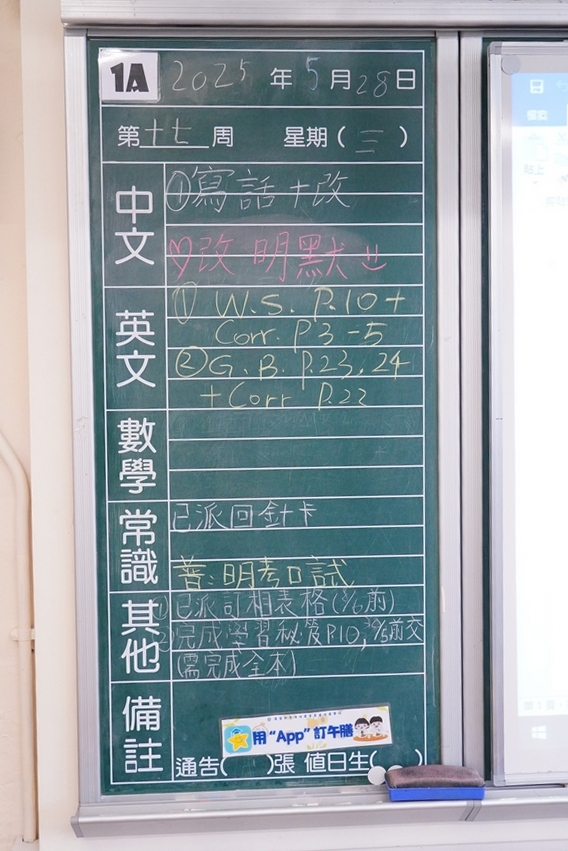 1A 2025 年 5 月 28 日
第 十七 周 星期( 三 )
中文
①寫話+改
♡改 明默
英文
① W.S. P.10+
Corr. P3-5
②G.B. P.23,24
+Corr P.22
數學
常識
已派回針卡
普:明考口試
其他
①已派訂相表格(2/6前)
②完成學習秘笈P.10, 30/5前交
(需完成全本)
備註
用“App”訂午膳
通告( )張 值日生( )
貼上